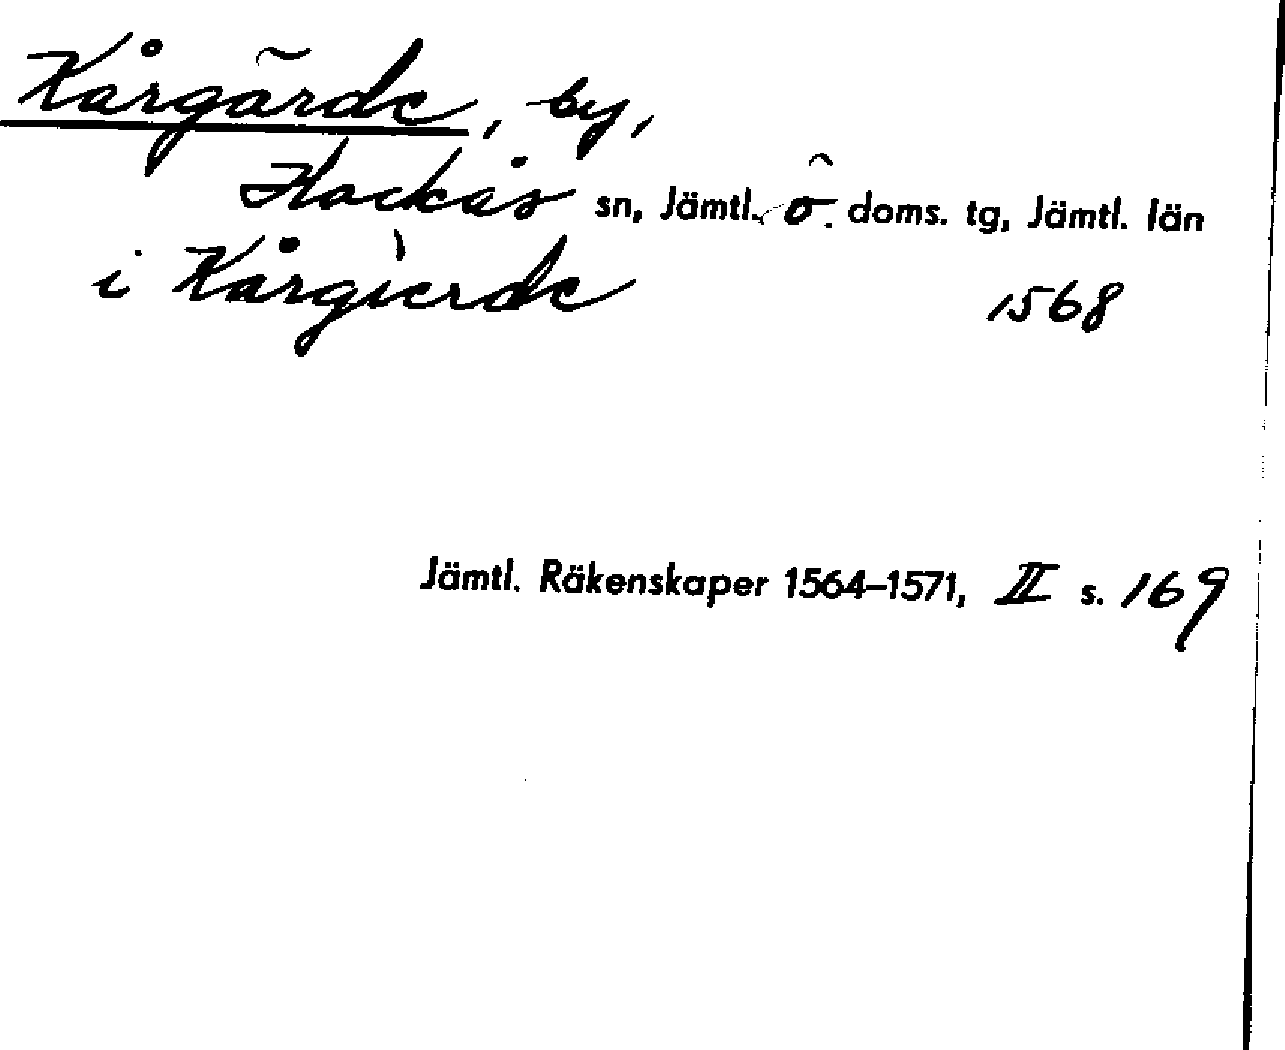 Kårgärde, by,
Hackås sn, Jämtl. ö. doms. tg, Jämtl. län
i Kårgierde 1568
Jämtl. Räkenskaper 1564–1571, II s. 169